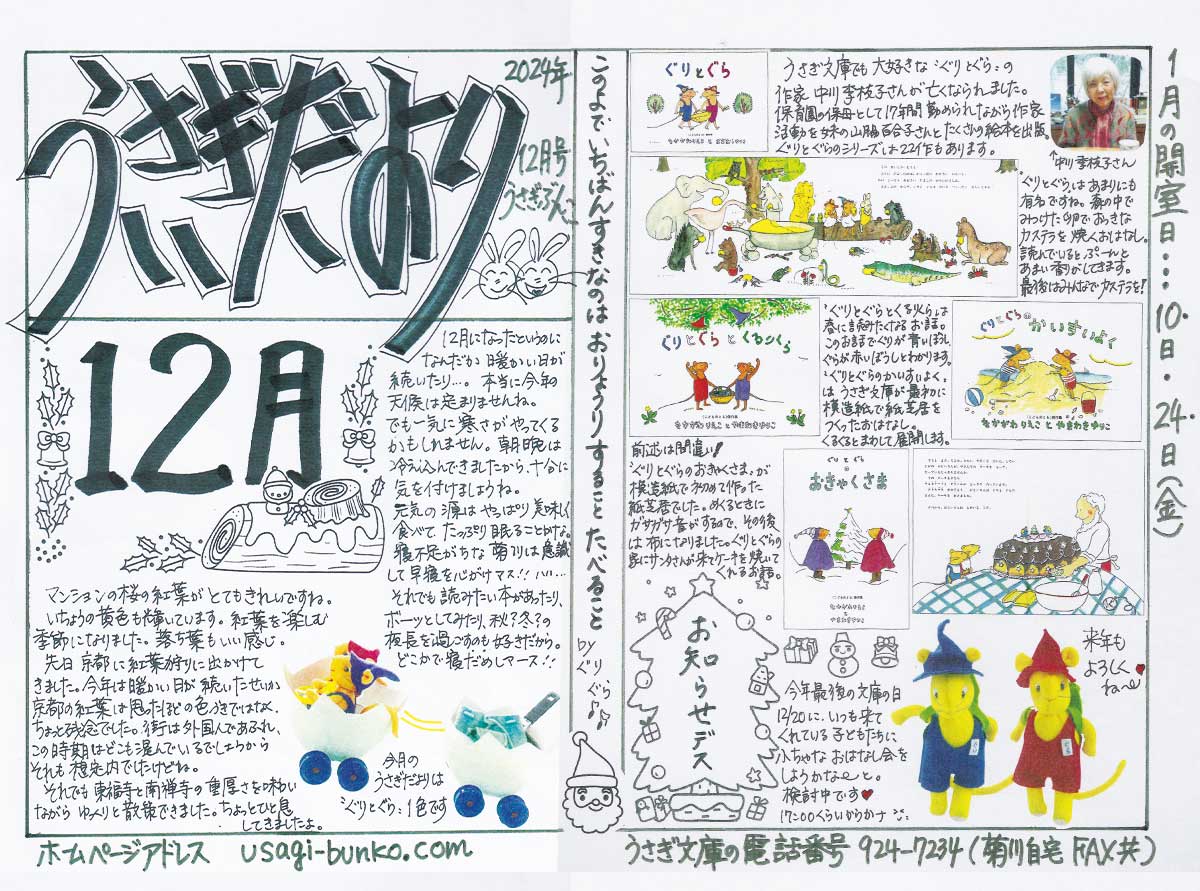 うさぎだより
2024年
12月号
うさぎぶんこ
12月
12月になったというのに
なんだか暖かい日が
続いたり…。本当に今年の
天候は定まりませんね。
でも一気に寒さがやってくる
かもしれません。朝晩は
冷え込んできましたから、十分に
気を付けましょうね。
元気の源はやっぱり美味しく
食べてたっぷり眠ることかな。
寝不足がちな菊川は意識
して早寝を心がけマス!!ハハ…
それでも読みたい本があったり、
ボーッとしてみたり、秋?冬?の
夜長を過ごすのも好きだから。
どこかで寝だめしマース!!
マンションの桜の紅葉がとてもきれいですね。
いちょうの黄色も輝いています。紅葉を楽しむ
季節になりました。落ち葉もいい感じ。
先日京都に紅葉狩りに出かけて
きました。今年は暖かい日が続いたせいか
京都の紅葉は思ったほどの色づきではなく、
ちょっと残念でした。街は外国人であふれ、
この時期はどこも混んでいるでしょうから
それも想定内でしたけどね。
それでも東福寺と南禅寺の重厚さを味わい
ながらゆっくりと散策できました。ちょっとひと息
してきましたよ。
今月の
うさぎだよりは
〝ぐりとぐら〟1色です
ホームページアドレス usagi-bunko.com
このよでいちばんすきなのは おりょうりすること たべること
by ぐりぐら♪♪
ぐりとぐら
なかがわりえこ と おおむらゆりこ
うさぎ文庫でも大好きな〝ぐりとぐら〟の
作家 中川李枝子さんが亡くなられました。
保育園の保母として17年間勤められながら作家
活動を妹の山脇百合子さんとたくさんの絵本を出版。
ぐりとぐらのシリーズは22作もあります。
↑中川李枝子さん
ぐりとぐらはあまりにも
有名ですね。森の中で
みつけた卵でおっきな
カステラを焼くおはなし。
読んでいるとぷーんと
あまい香りがしてきます。
最後はみんなでカステラを!
ぐりとぐらとくるりくら
なかがわりえこ と やまわきゆりこ
〝ぐりとぐらとくるりくら〟は
春に読みたくなるお話。
このお話でぐりが青いぼうし、
ぐらが赤いぼうしとわかります。
〝ぐりとぐらのかいすいよく〟
はうさぎ文庫が最初に
模造紙で紙芝居を
つくったおはなし。
くるくるとまわして展開します。
ぐりとぐらの
かいすいよく
なかがわりえこ と やまわきゆりこ
前述は間違い!
〝ぐりとぐらのおきゃくさま〟が
模造紙で初めて作った
紙芝居でした。めくるときに
ガサガサ音がするので、その後
は布になりました。ぐりとぐらの
家にサンタさんが来てケーキを焼いて
くれるお話。
ぐりとぐら
の
おきゃくさま
なかがわりえこ
と
やまわきゆりこ
お知らせデス
今年最後の文庫の日
12/20に、いつも来て
くれている子どもたちに
小ちゃなおはなし会を
しようかな〜と。
検討中です♥
17:00ぐらいからかナ
来年も
よろしく
ね〜♥
1月の開室日…10日・24日(金)
うさぎ文庫の電話番号 924-7234(菊川自宅FAX共)